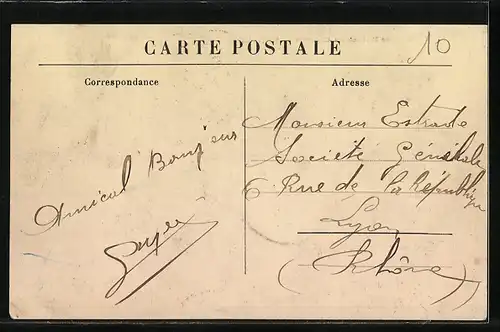 CARTE POSTALE
10
Correspondance
Amical Bonjour
Adresse
Monsieur Estrade
Société Générale
6 Rue de la République
Lyon
(Rhône)